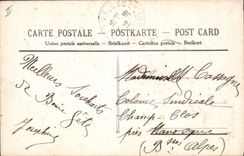 CARTE POSTALE POSTKARTE POST CARD
Union postale universelle Briefkaart Cartolina postale Brefkort
Meilleurs Souhaits
de Bonne fête
Joséphine
Mademoiselle M. Cassagne
Colonie Sindicale
Champ-Clos
près Manosque
(Bses Alpes)